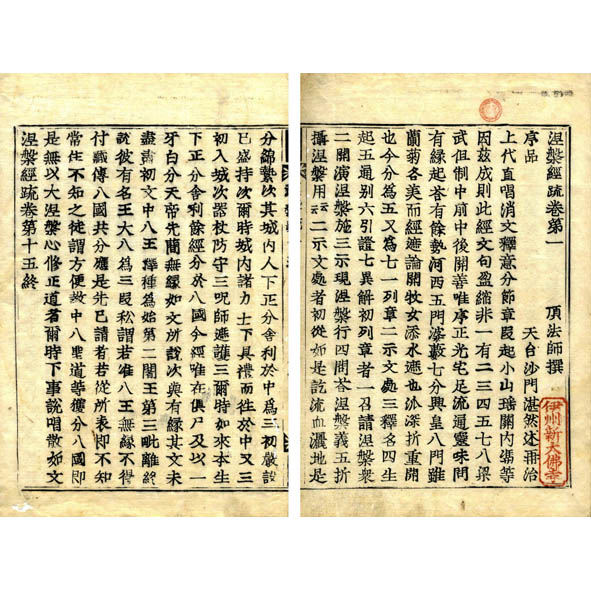 涅槃經疏卷第一 頂法師撰
序品 天台沙門湛然述再治
上代直唱消文釋意分節章段起小山瑤關內憑等
因茲成則此經文句盈縮非一有二三四五七八梁
武但制中前中後開善唯序正光宅足流通靈味問
有緣起荅有餘勢河西五門婆藪七分興皇八門雖
蘭菊各美而經遮論開牧女添水遮也派深折重開
也今分為五又為七一列章二示文處三釋名四生
起五通別六引證七異解初列章者一召請涅槃衆
二開演涅槃施三示現涅槃行四問荅涅槃義五折
攝涅槃用云云二示文處者初從如是訖流血灑地是
伊州新大佛寺
分錦次其城內人下正分舍利於中為三初嚴設
已盛持次爾時城內諸力士下具禮而往於中又三
初入城次器杖防守三呪師遮護三爾時如來本生
下正分舍利餘經分於八國今經唯在俱尸及以一
牙白分天帝先簡無緣如文所說次與有緣其文未
盡初文中八王釋種為始第二闍王第三毗離終
說彼有名王大八為三段私謂若准八王無緣不得
付傳八國共分應是先已請者若從所表即不知
常住不知之徒謂方便教中八聖道等獲分八國即
是無以大涅槃心修正道者爾時下事說唱散如文
涅槃經疏卷第十五終